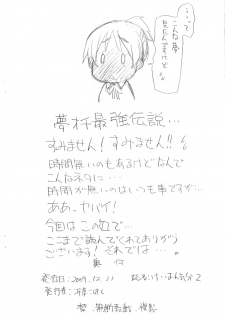 …って
こんな夢
見たんですけど
夢杯最強伝説…
すみません!すみません!!
時間無いのもあるけどなんで
こんなネタに…
時間が無いのはいつも事ですが…
ああ、ヤバイ!
今回はこの辺で…
ここまで読んでくれてありがとう
ございます!それでは…
奥付
発行日:2009.12.31
発行者:
禁 無断転載・複製